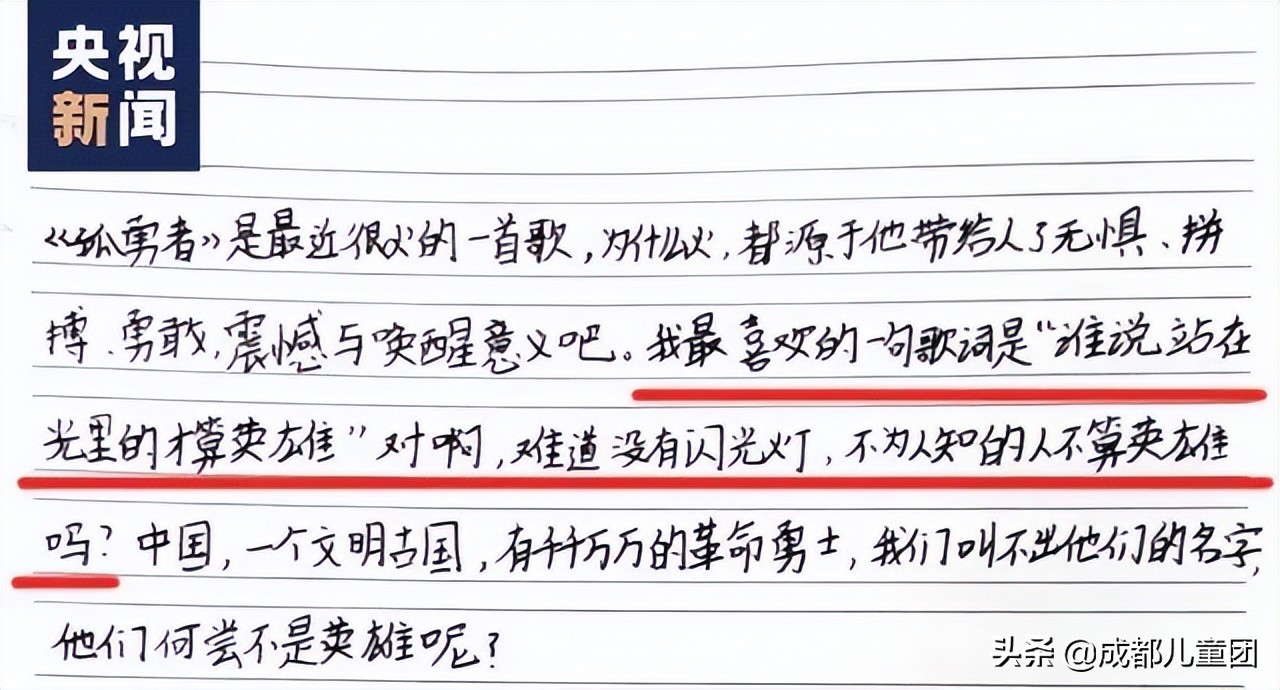 央视
新闻
《孤勇者》是最近很火的一首歌，为什么火，都源于他带给人了无惧、拼
搏、勇敢，震憾与唤醒意义吧。我最喜欢的一句歌词是“谁说站在
光里的才算英雄”对啊，难道没有闪光灯，不为人知的人不算英雄
吗？中国，一个文明古国，有千千万万的革命勇士，我们叫不出他们的名字，
他们何尝不是英雄呢？
头条 @成都儿童团